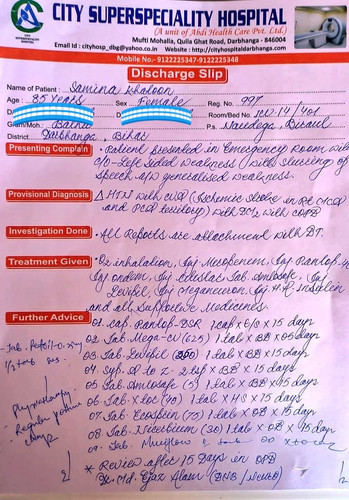 CITY SUPERSPECIALITY HOSPITAL
(A unit of Abdi Health Care Pvt. Ltd.)
Mufti Mohalla, Quila Ghat Road, Darbhanga - 846004
Email Id : cityhosp_dbg@yahoo.co.in Website : http://cityhospitaldarbhanga.com
Mobile No.- 9122225347-9122225348
Discharge Slip
Name of Patient : Samina Khatoon
Age : 85 Years Sex Female Reg. No. 997
Room/Bed No. ICU-14/401
Gram/Moh. P.s.
District. Darbhanga, Bihar
Presenting Complain • Patient presented in Emergency room with
c/o - Left sided weakness with slurring of
speech a/w generalised weakness.
Provisional Diagnosis Δ HTN with CVA (Ischemic stroke in Rt MCA
and PCA territory) with with COPD
Investigation Done • All Reports are attachment with BT.
Treatment Given • O2 inhalation, Inj Meropenem, Inj Pantop, Inj
Tab Amlosafe, Inj
Levipil, Inj Inj H.R Insulin
and all supportive Medicines.
Further Advice
01. Cap. Pantop-DSR 1 cap x B/S x 15 days
02. Tab. Mega-CV (625) 1 tab x BD x 05 days
03. Tab. Levipil 1 tab x BD x 15 days
04. Syp. A to Z - 2 tsp x BD x 15 days
05. Tab. Amlosafe (5) 1 tab x BD x 15 days
06. Tab. (40) 1 tab x HS x 15 days
07. Tab. Ecosprin (75) 1 tab x OD x 15 days
08. Tab. (30) 1 tab x OD x 15 days
09. Tab. Mucyflow 1 tab
- Physiotherapy
- Regular posture
change
* Review after 15 Days in OPD
Dr. Md. Ejaz Alam (DNB/Neuro)